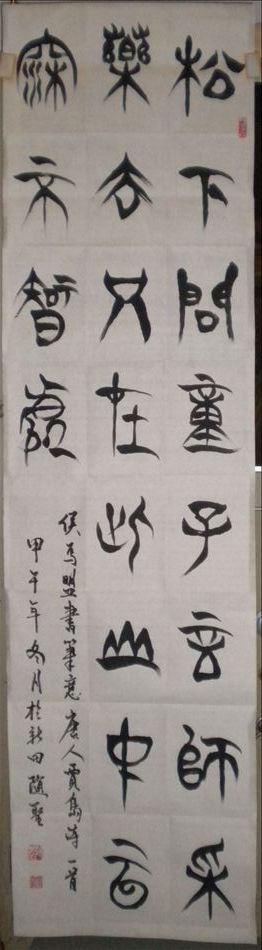 松下問童子言師采
藥去只在此山中云
深不智處
侯馬盟書筆意 唐人賈島诗一首
甲午年冬月於新田隨聖